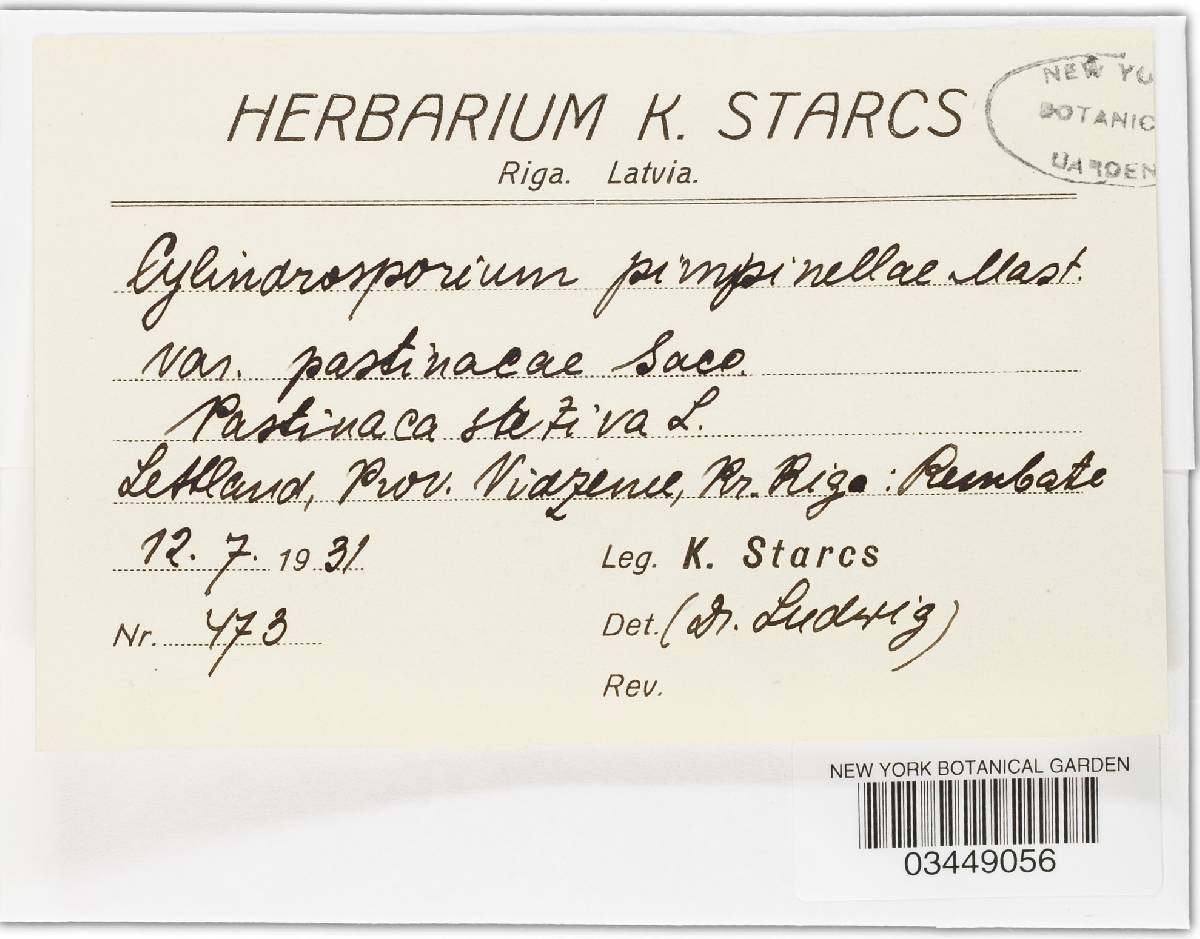 HERBARIUM K. STARCS
Riga. Latvia.
NEW YO
BOTANIC
GARDEN
Cylindrosporium pimpinellae Mast.
var. pastinacae Sacc.
Pastinaca sativa L.
Lettland, Prov. Vidzeme, Kr. Riga: Rembate
12. 7. 1931
Leg. K. Starcs
Nr. 473
Det. (Dr. Ludwig)
Rev.
NEW YORK BOTANICAL GARDEN
03449056